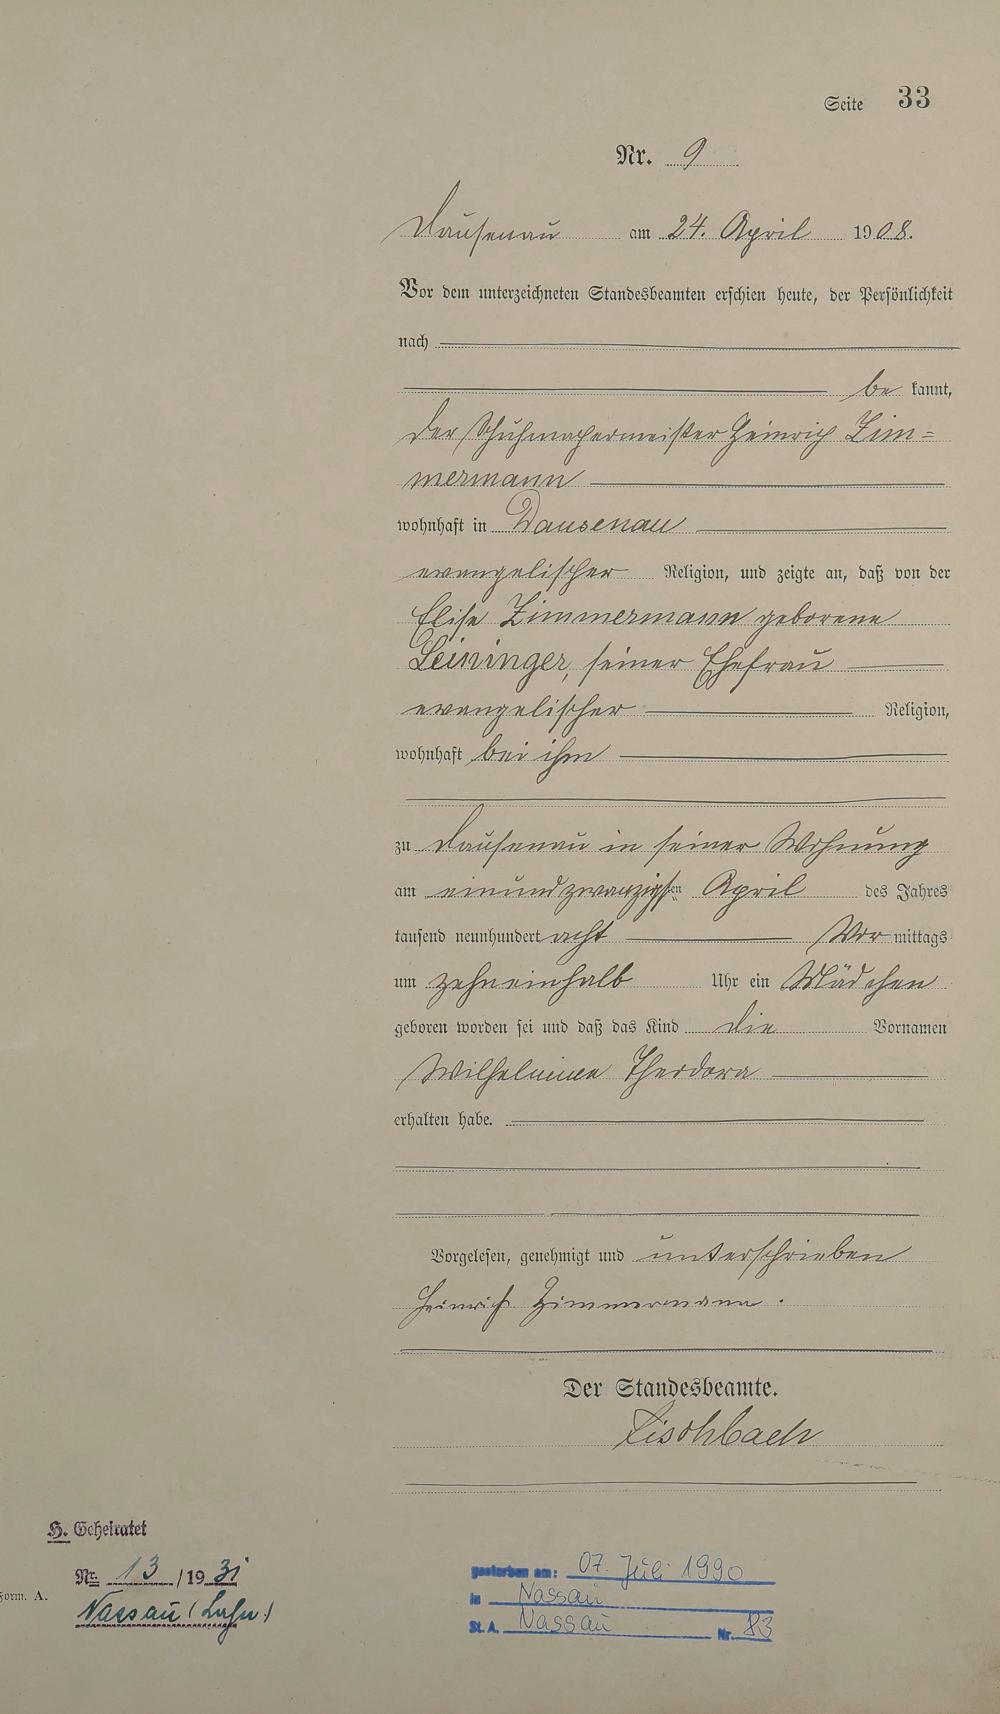 Seite 33
Nr. 9
Dausenau am 24. April 1908.
Vor dem unterzeichneten Standesbeamten erschien heute, der Persönlichkeit
nach
be kannt,
der Schuhmachermeister Heinrich Zim=
mermann
wohnhaft in Dausenau
evangelischer Religion, und zeigte an, daß von der
Elise Zimmermann geborene
Leininger, seiner Ehefrau
evangelischer Religion,
wohnhaft bei ihm
zu Dausenau in seiner Wohnung
am einundzwanzigsten April des Jahres
tausend neunhundert acht Vor mittags
um zehneinhalb Uhr ein Mädchen
geboren worden sei und daß das Kind die Vornamen
Wilhelmine Theodora
erhalten habe.
Vorgelesen, genehmigt und unterschrieben
Heinrich Zimmermann.
Der Standesbeamte.
Fischbach
H. Geheiratet
Nr. 13 / 1931
Nassau (Lahn)
Form. A.
gestorben am: 07. Juli 1990
in Nassau
St. A. Nassau Nr. 83